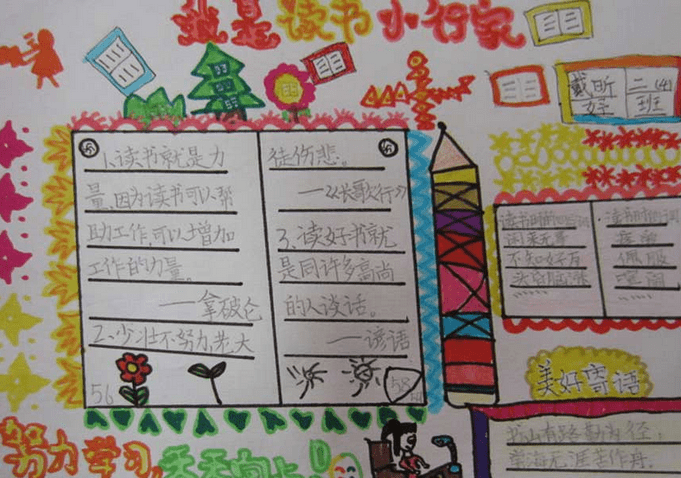 我是读书小行家
戴昕妤
二(4)班
1、读书就是力
量,因为读书可以帮
助工作,可以增加
工作的力量。
——拿破仑
2、少壮不努力,老大
56
徒伤悲。
——《长歌行》
3、读好书就
是同许多高尚
的人谈话。
——谚语
58
闲来无事
不知好歹
头昏脑涨
佩服
美好寄语
书山有路勤为径,
学海无涯苦作舟。
努力学习,天天向上!